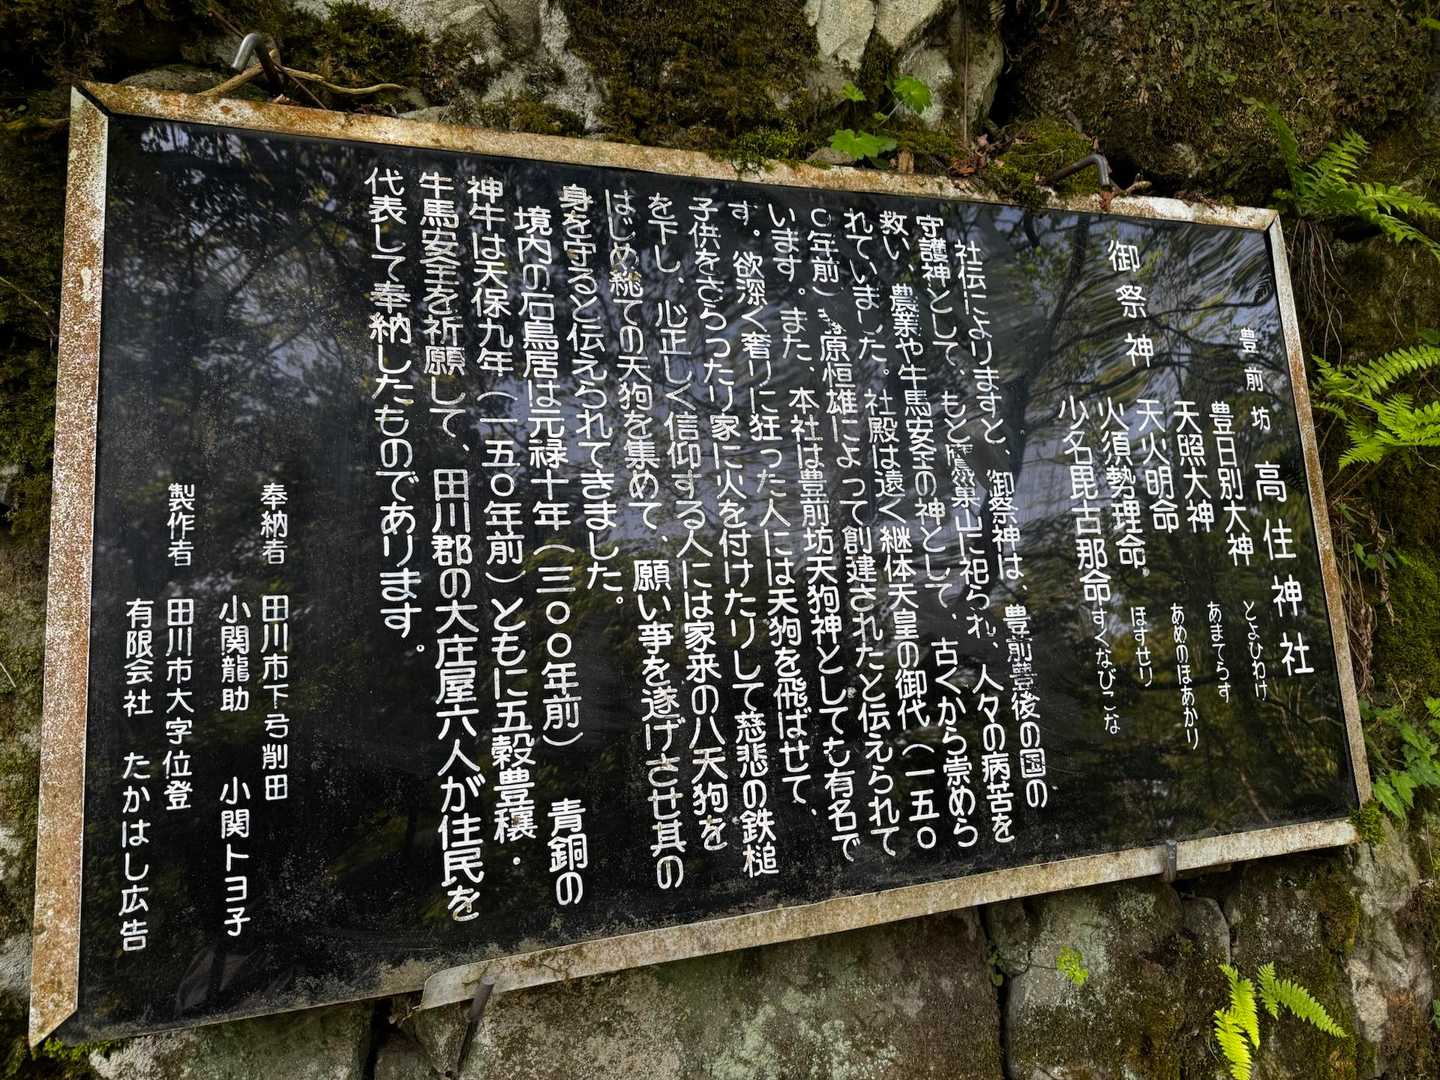 豊前坊 高住神社
御祭神
豊日別大神 とよひわけ
天照大神 あまてらす
天火明命 あめのほあかり
火須勢理命 ほすせり
少名毘古那命 すくなびこな
社伝によりますと、御祭神は、豊前豊後の国の
守護神として、もと鷹巣山に祀られ、人々の病苦を
救い、農業や牛馬安全の神として、古くから崇めら
れていました。社殿は遠く継体天皇の御代(一五〇
〇年前) 原恒雄によって創建されたと伝えられて
います。また、本社は豊前坊天狗神としても有名で
す。欲深く奢りに狂った人には天狗を飛ばせて、
子供をさらったり家に火を付けたりして慈悲の鉄槌
を下し、心正しく信仰する人には家来の八天狗を
はじめ総ての天狗を集めて、願い事を遂げさせ其の
身を守ると伝えられてきました。
境内の石鳥居は元禄十年(三〇〇年前) 青銅の
神牛は天保九年(一五〇年前)ともに五穀豊穣・
牛馬安全を祈願して、田川郡の大庄屋六人が住民を
代表して奉納したものであります。
奉納者 田川市下弓削田
小関龍助 小関トヨ子
製作者 田川市大字位登
有限会社 たかはし広告